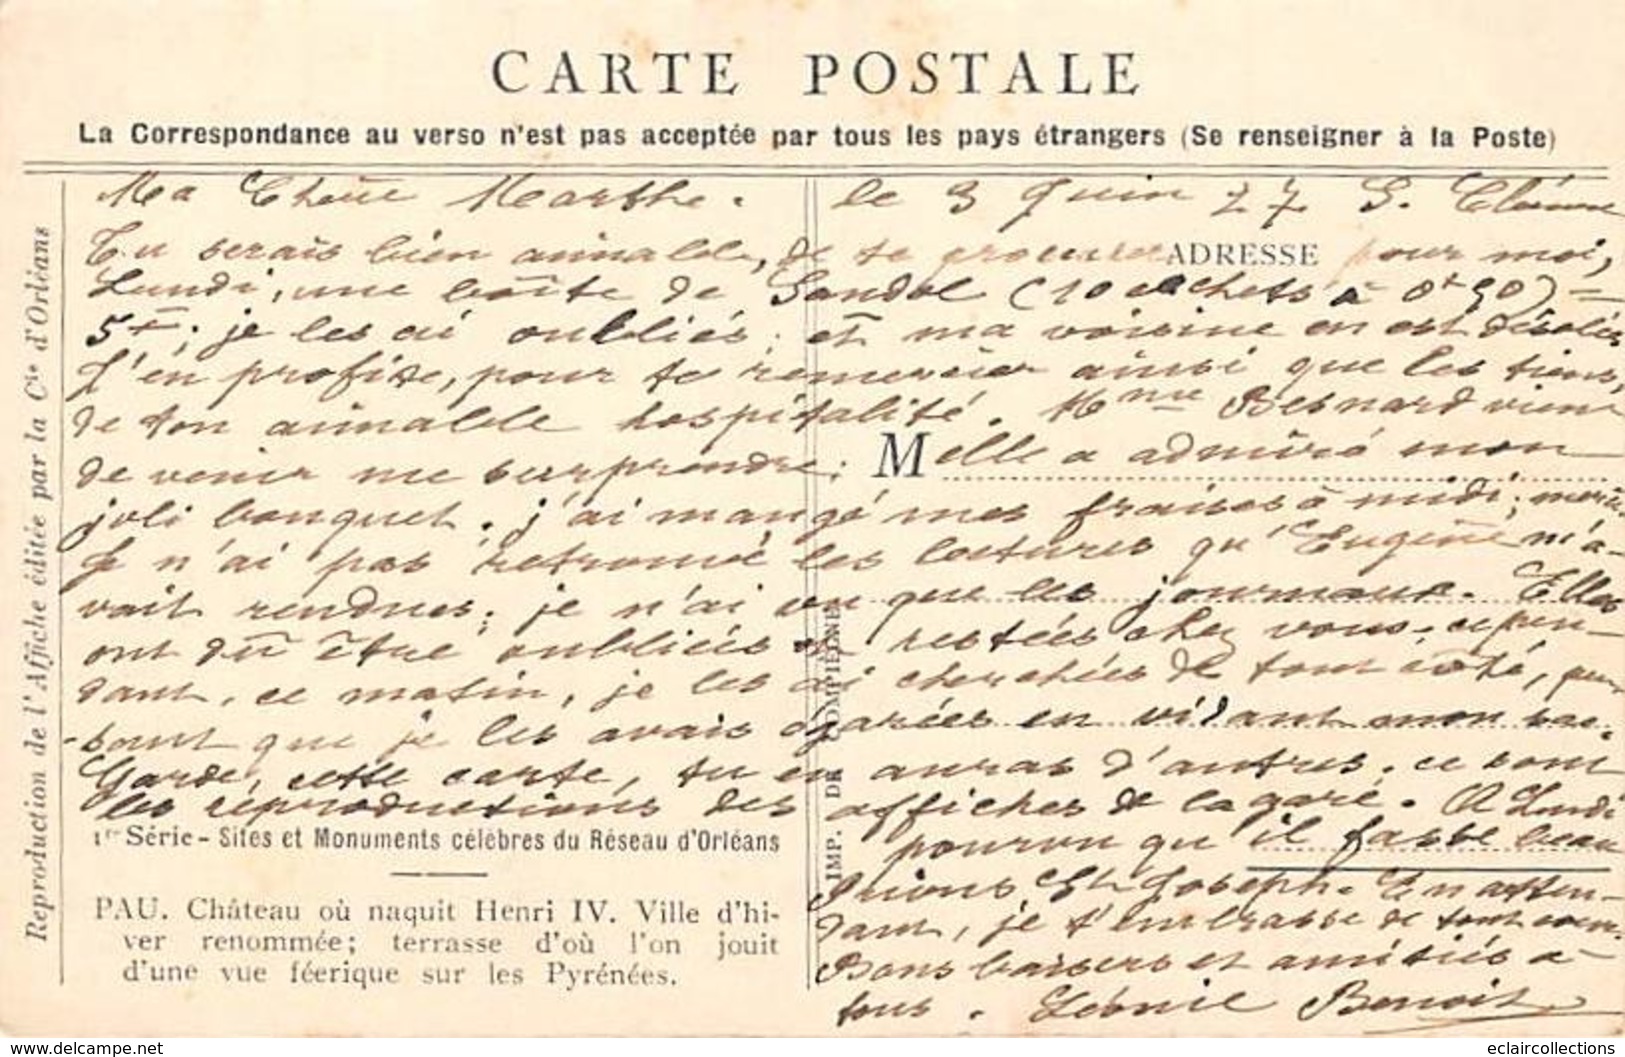 CARTE POSTALE
La Correspondance au verso n'est pas acceptée par tous les pays étrangers (Se renseigner à la Poste)
Reproduction de l'Affiche éditée par la Cie d'Orléans
Ma Chère Marthe. le 3 Juin 27
ADRESSE
Tu serais bien aimable, de te procurer pour moi,
Lundi, une boîte de Sandol (10 cachets à 0f50) =
5f; je les ai oubliés; et ma voisine en est désolée
J'en profite, pour te remercier ainsi que les tiens,
de ton aimable hospitalité. Mme Besnard vient
de venir me surprendre; Melle a admiré mon
joli bouquet. j'ai mangé mes fraises à midi;
Je n'ai pas retrouvé les lectures qu'Eugène m'a-
vait rendues; je n'ai vu que les journaux. Elles
ont dû être oubliées et restées chez vous. cepen-
dant, ce matin, je les ai cherchées de tout côté, pen-
-sant que je les avais égarées en vidant mon sac.
Garde, cette carte, tu en auras d'autres. ce sont
les reproductions des affiches de la gare. A Lundi
pourvu qu'il fasse beau
Prions St Joseph. En atten-
dant, je t'embrasse de tout coeur.
Bons baisers et amitiés à
tous. Léonie Benoit
1re Série - Sites et Monuments célèbres du Réseau d'Orléans
PAU. Château où naquit Henri IV. Ville d'hi-
ver renommée; terrasse d'où l'on jouit
d'une vue féerique sur les Pyrénées.
IMP. DE COMPIÈGNE
www.delcampe.net
eclaircollections